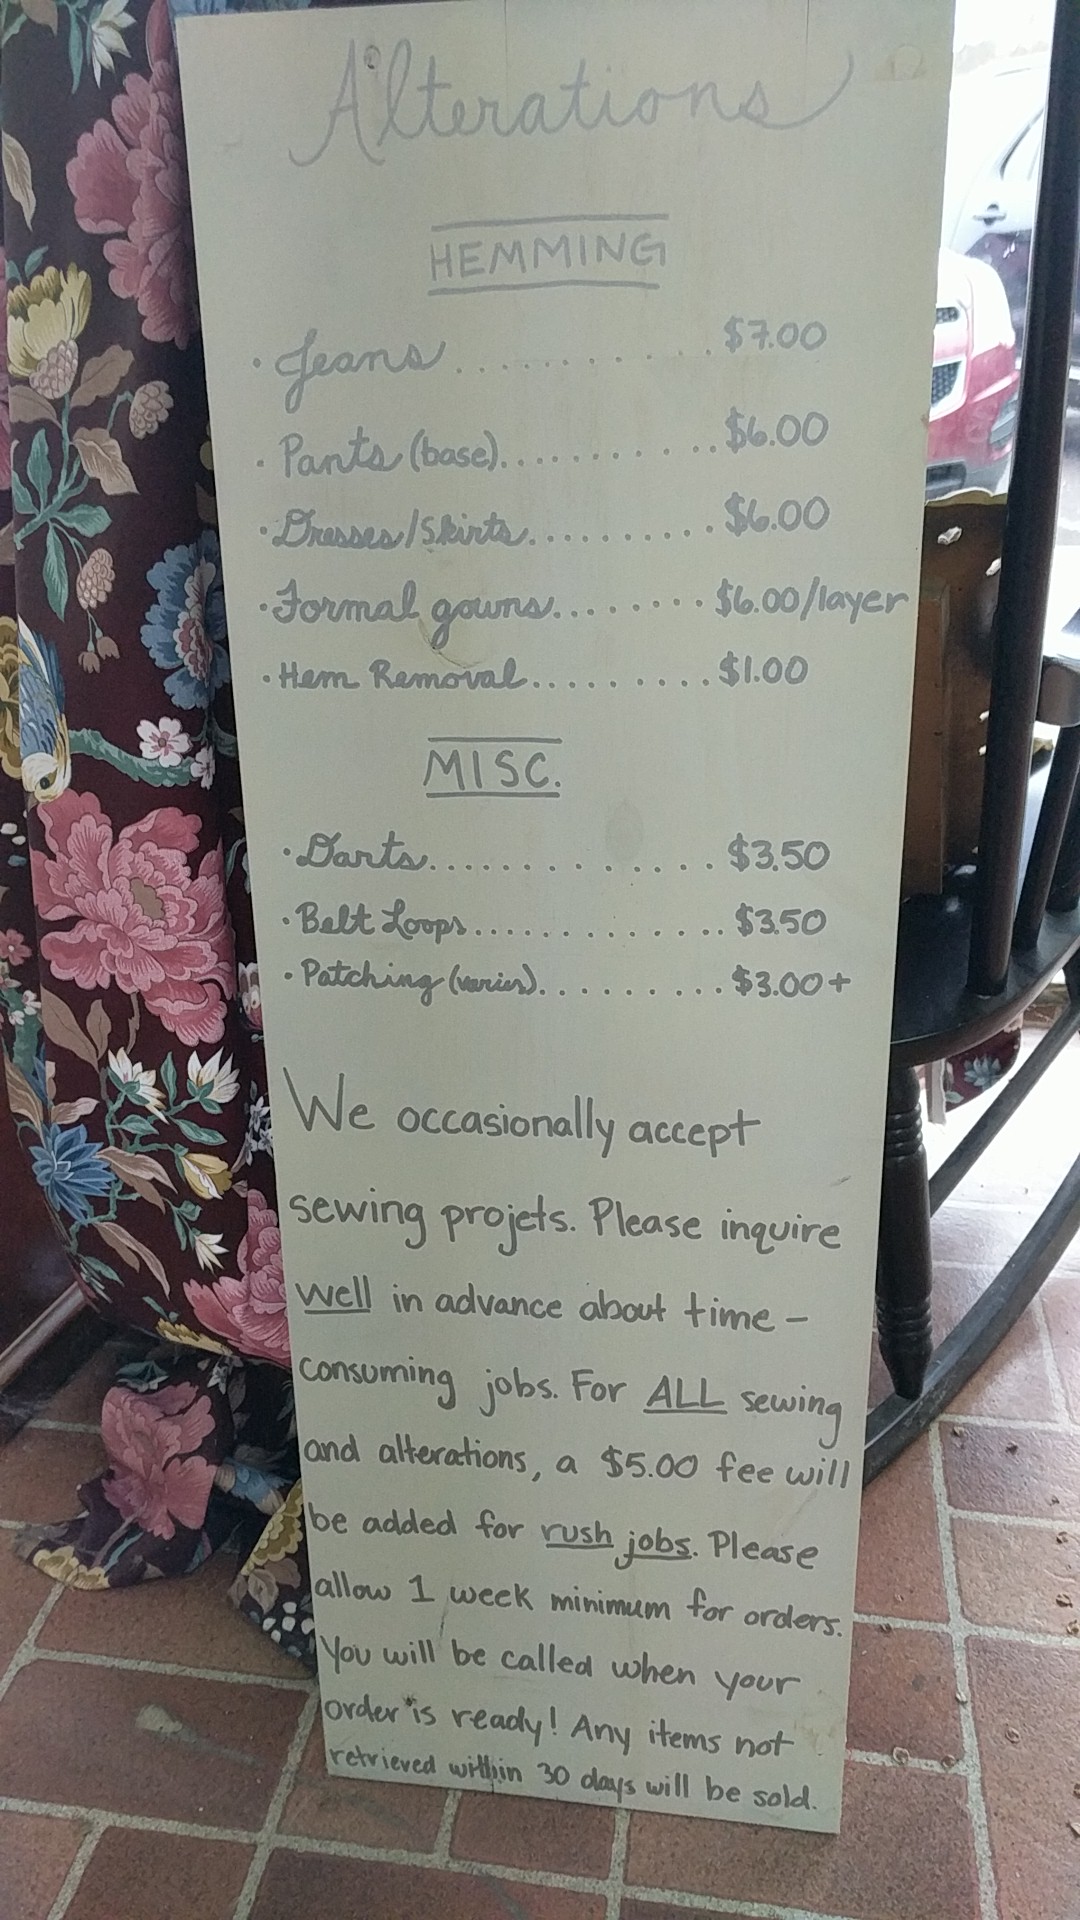 Alterations
HEMMING
· Jeans ......... $7.00
· Pants (base)........... $6.00
· Dresses/Skirts.......... $6.00
· Formal gowns........ $6.00/layer
· Hem Removal......... $1.00
MISC.
· Darts............. $3.50
· Belt Loops............. $3.50
· Patching (varies).......... $3.00+
We occasionally accept
sewing projets. Please inquire
well in advance about time -
consuming jobs. For ALL sewing
and alterations, a $5.00 fee will
be added for rush jobs. Please
allow 1 week minimum for orders.
You will be called when your
order is ready! Any items not
retrieved within 30 days will be sold.